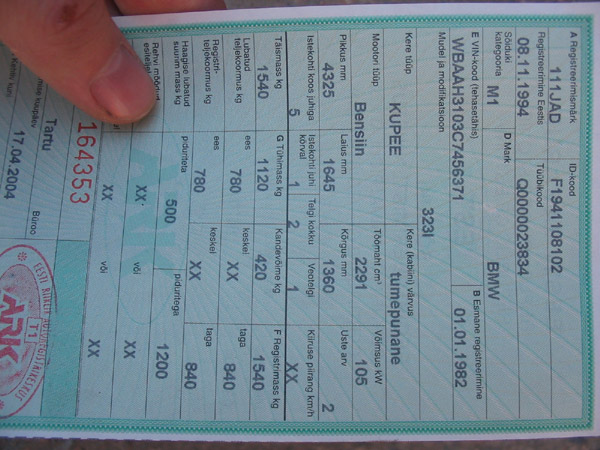 A Registreerimismärk ID-kood
111JAD F1941108102
Registreerimine Eestis Tüübikood
08.11.1994 Q0000023834
Sõiduki kategooria D Mark B Esmane registreerimine
M1 BMW 01.01.1982
E VIN-kood (tehasetähis)
WBAAH3103C7456371
Mudel ja modifikatsioon
323I
Kere tüüp Kere (kabiini) värvus
KUPEE tumepunane
Mootori tüüp Töömaht cm³ Võimsus kW
Bensiin 2291 105
Pikkus mm Laius mm Kõrgus mm Uste arv
4325 1645 1360 2
Istekohti koos juhiga Istekohti juhi kõrval Telgi kokku Veotelgi Kiiruse piirang km/h
5 1 2 1 XX
Täismass kg G Tühimass kg Kandevõime kg F Registrimass kg
1540 1120 420 1540
Lubatud teljekoormus kg ees keskel taga
780 XX 840
Registri- teljekoormus kg ees keskel taga
780 XX 840
Haagise lubatud suurim mass kg piduriteta piduritega
500 1200
Rehvi mõõdud
või
XX XX
või
XX XX
164353
Tartu
Büroo
17.04.2004
EESTI RIIKLIK AUTOREGISTRIKESKUS
T1
ARK